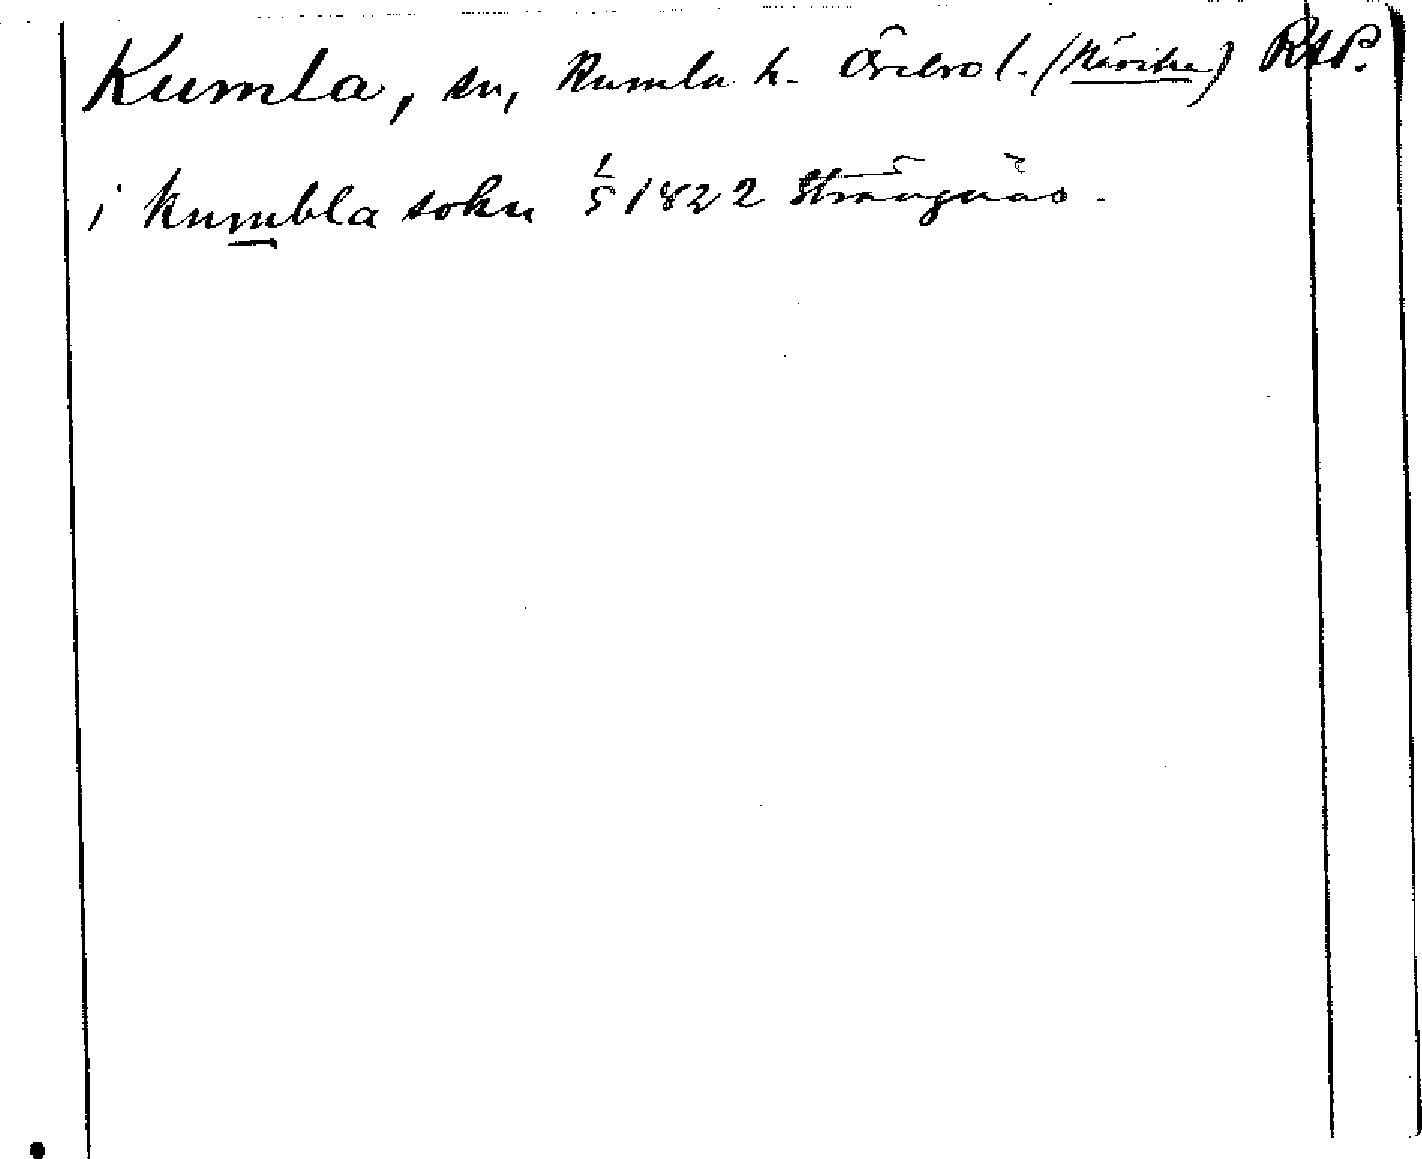 Kumla, sn, Kumla h. Örebro l. (Närike) RAP.
i kumbla sokn 1/5 1822 Strängnäs.